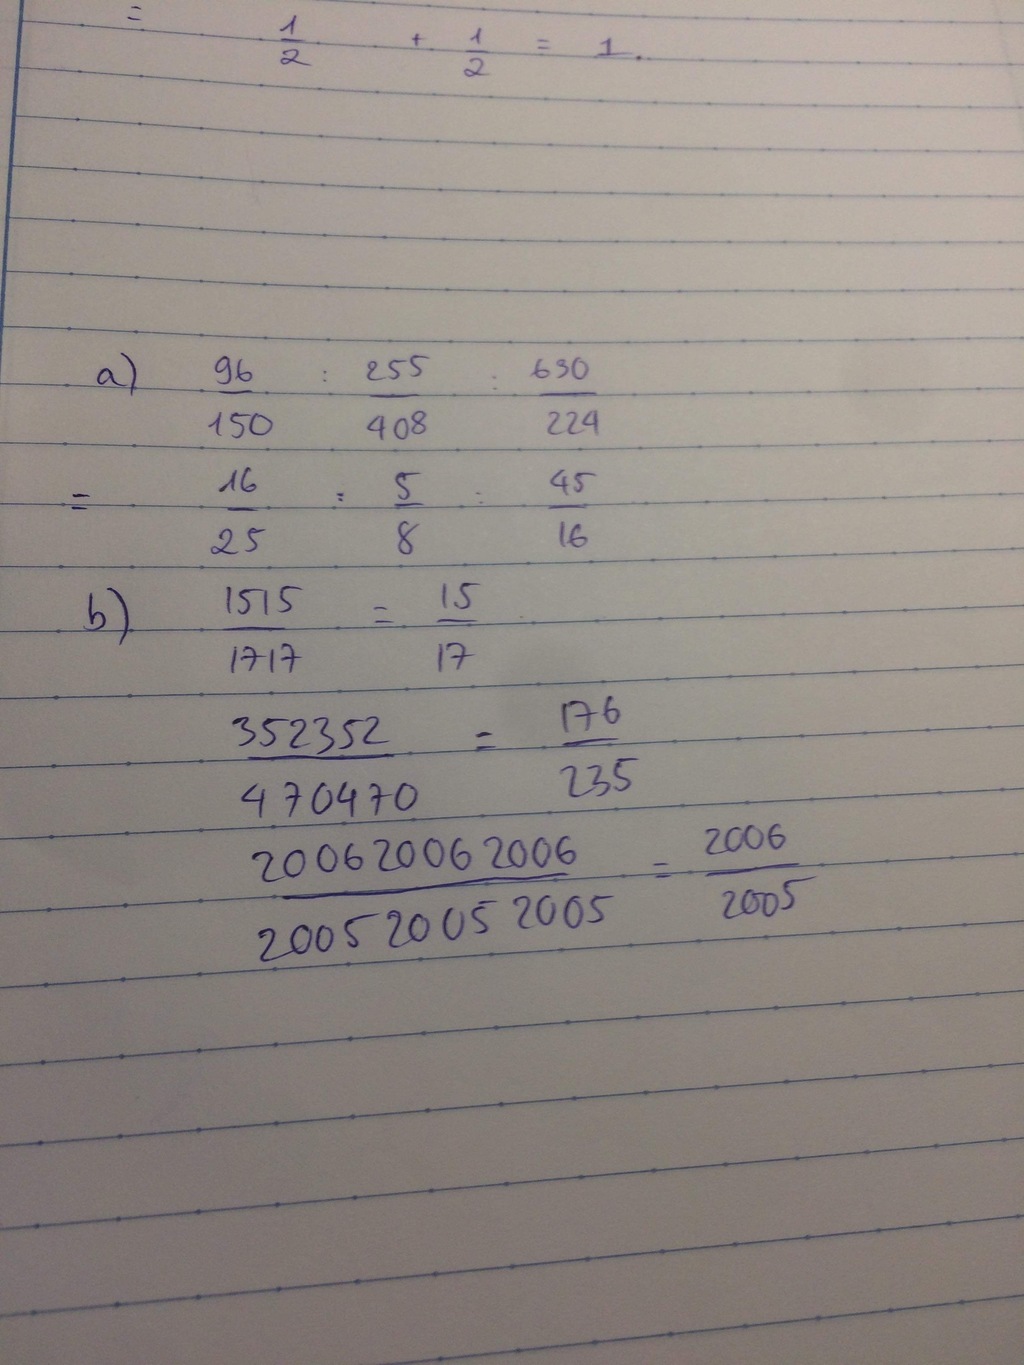 = 1/2 + 1/2 = 1.
a) 96/150 : 255/408 : 630/224
= 16/25 : 5/8 : 45/16
b) 1515/1717 = 15/17
352352/470470 = 176/235
200620062006/200520052005 = 2006/2005